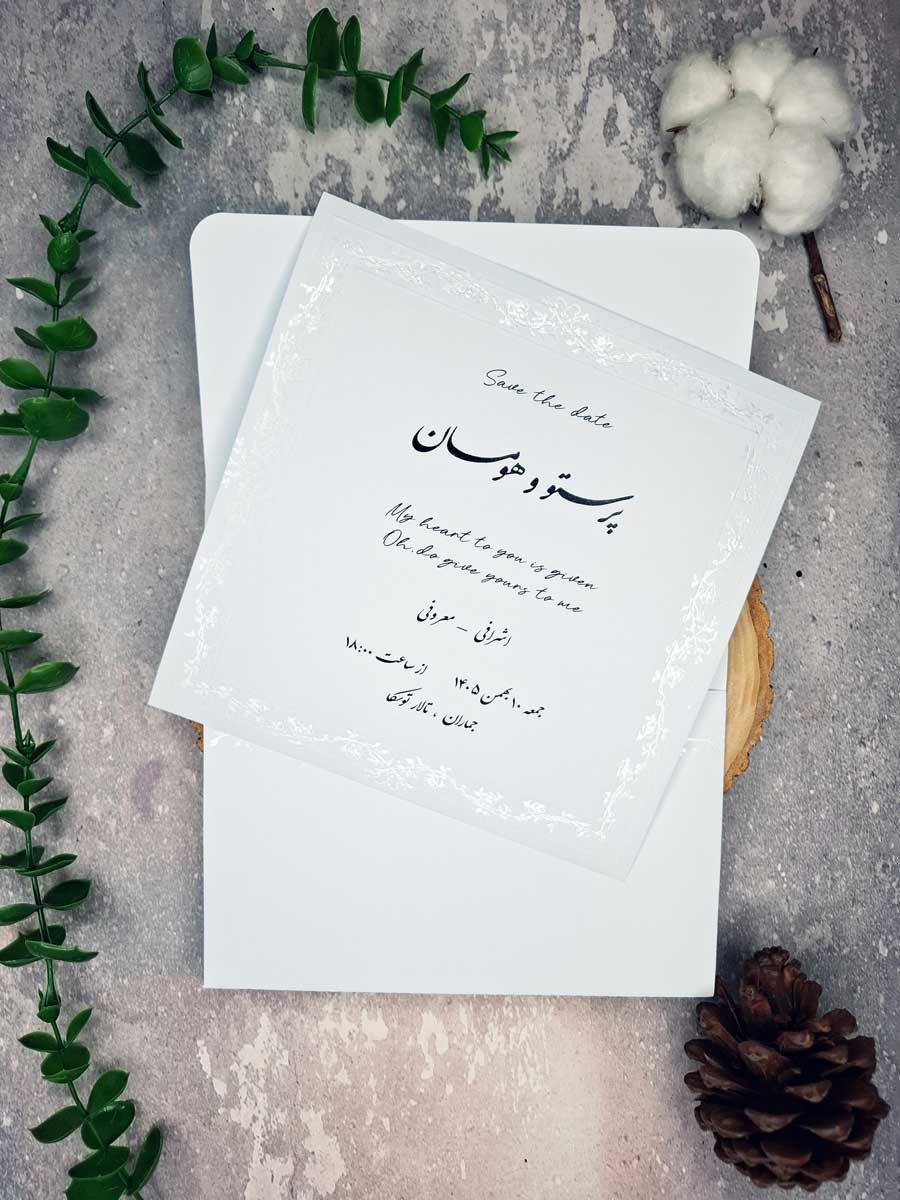 Save the date
پرستو و هومان
My heart to you is given
Oh, do give yours to me
اشرافی - معروفی
جمعه ۱۰ بهمن ۱۴۰۵ از ساعت ۱۸:۰۰
جماران ، تالار توسکا